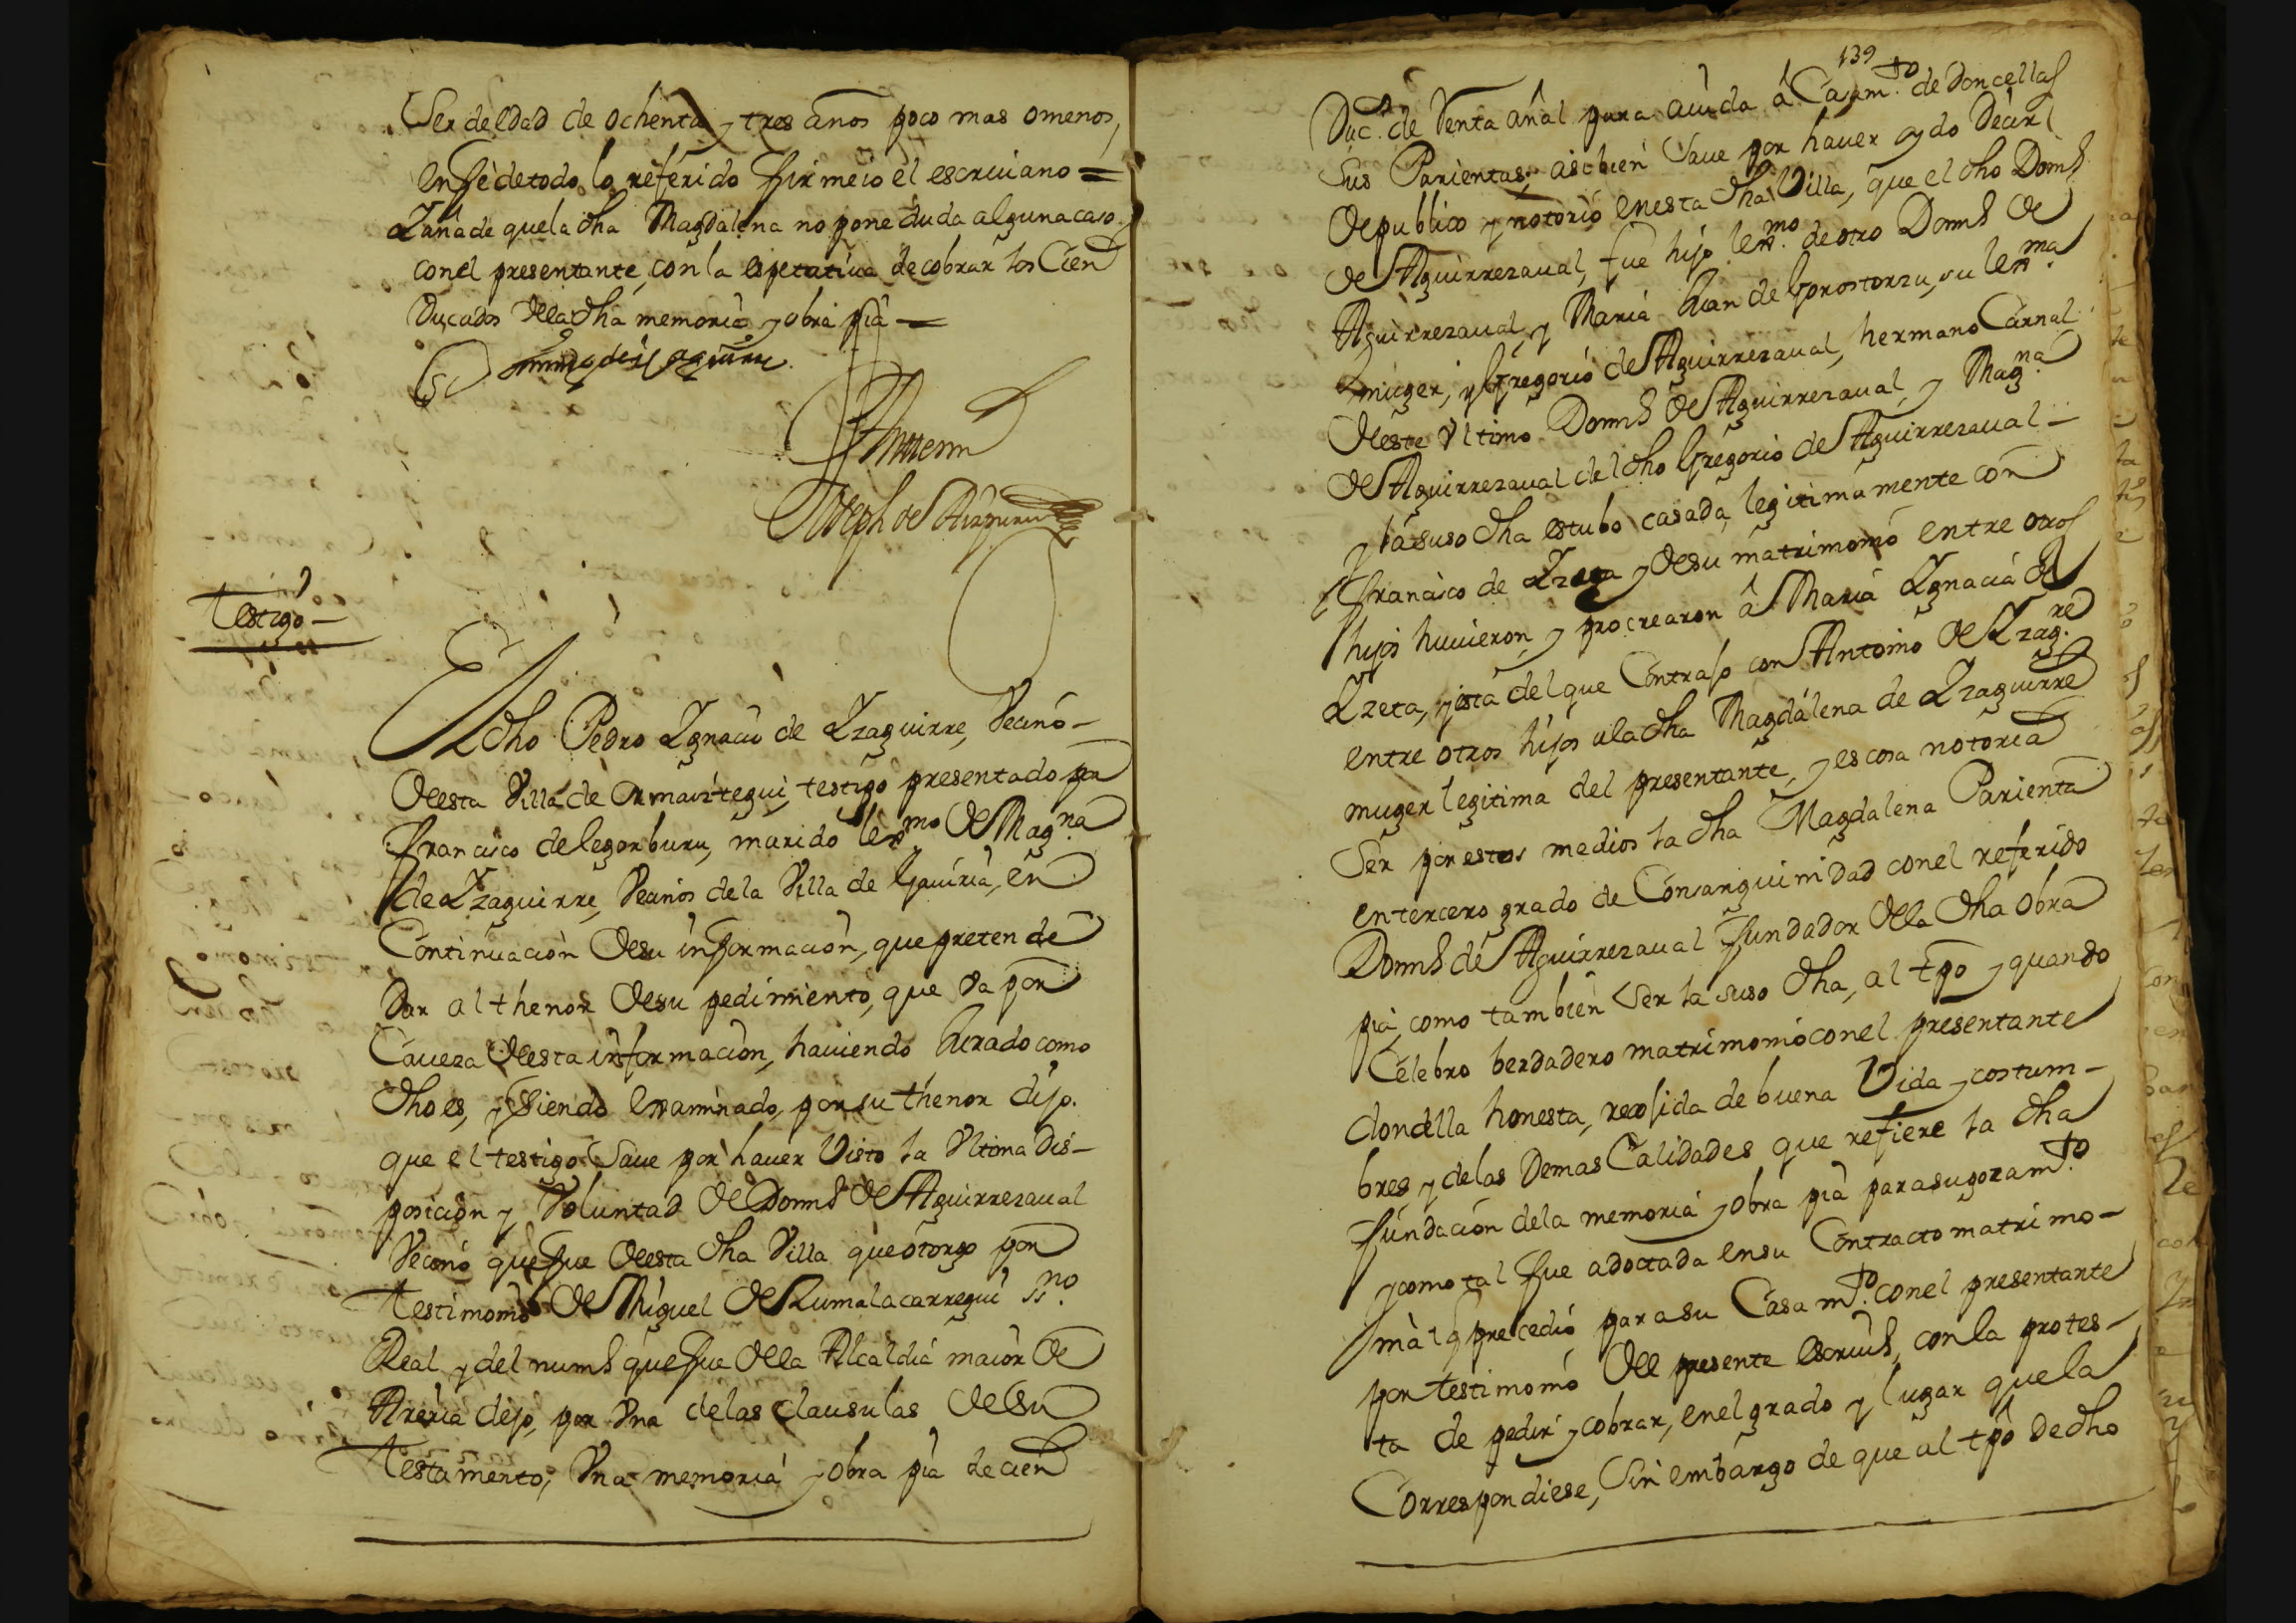 Ser de edad de ochenta y tres años poco mas omenos,
enfee de todo lo referido firme io el escriuano =
Y añade que la dha Magdalena no pone duda alguna caso
con el presentante, con la espetatiua de cobrar los Cien
Ducados de la dha memoria y obra pia =
Joseph de Aizpuru
Testigo
El dho Pedro Ygnacio de Yzaguirre, Vecino
de esta Villa de Ormaiztegui, testigo presentado por
Francisco de legorburu, marido lexmo de Magna
de Yzaguirre, Vecinos de la Villa de Gauiria, en
Continuacion de su informacion, que pretende
Dar al thenor de su pedimiento, que va por
Caueza de esta informacion, hauiendo Jurado como
dho es, y siendo examinado, por su thenor dijo.
que el testigo Saue por hauer Visto la Vltima Dis-
posicion y Voluntad de Domns de Aguirrezaual
Vecino que fue de esta dha Villa que otorgo por
testimonio de Miguel de Zumalacarregui ssno
Real y del nums que fue de la Alcaldia maior de
Areria dejo, por Vna de las clausulas de su
Testamento, Vna memoria y obra pia de cien
139
Duc.s de Renta añal para aiuda â Casam.to de Doncellas
Sus Parientas; asi bien Saue por hauer oydo Decir
de publico y notorio en esta dha Villa, que el dho Domns
de Aguirrezaual, fue hijo lexmo de otro Domns de
Aguirrezaual, y Maria Juan de Gorostorzu, su lexma
muger, y Gregorio de Aguirrezaual, hermano Carnal
de este Vltimo Domns de Aguirrezaual, y Magna
de Aguirrezaual del dho Gregorio de Aguirrezaual
y la suso dha estubo casada legitimamente con
Francisco de Yzeta y de su matrimonio entre otros
hijos huuieron, y procrearon â Maria Ygnacia de
Yzeta, y esta del que Contrajo con Antonio de Yzag.re
entre otros hijos a la dha Magdalena de Yzaguirre
muger legitima del presentante, y es cosa notoria
Ser por estos medios la dha Magdalena Parienta
en tercero grado de Consanguinidad con el referido
Domns de Aguirrezaual fundador de la dha obra
pia, como tambien Ser la suso dha, al tpo y quando
Celebro berdadero matrimonio con el presentante
doncella honesta, recojida de buena Vida y costum-
bres y de las Demas Calidades que refiere la dha
fundacion de la memoria y obra pia para su goram.to
y como tal fue adoctada en su Contracto matrimo-
nial q precedio, para su Casam.to con el presentante
por testimonio del presente escriuns, con la protes-
ta de pedir y cobrar, en el grado y lugar que la
Correspondiese, Sin embargo de que al tpo de dho